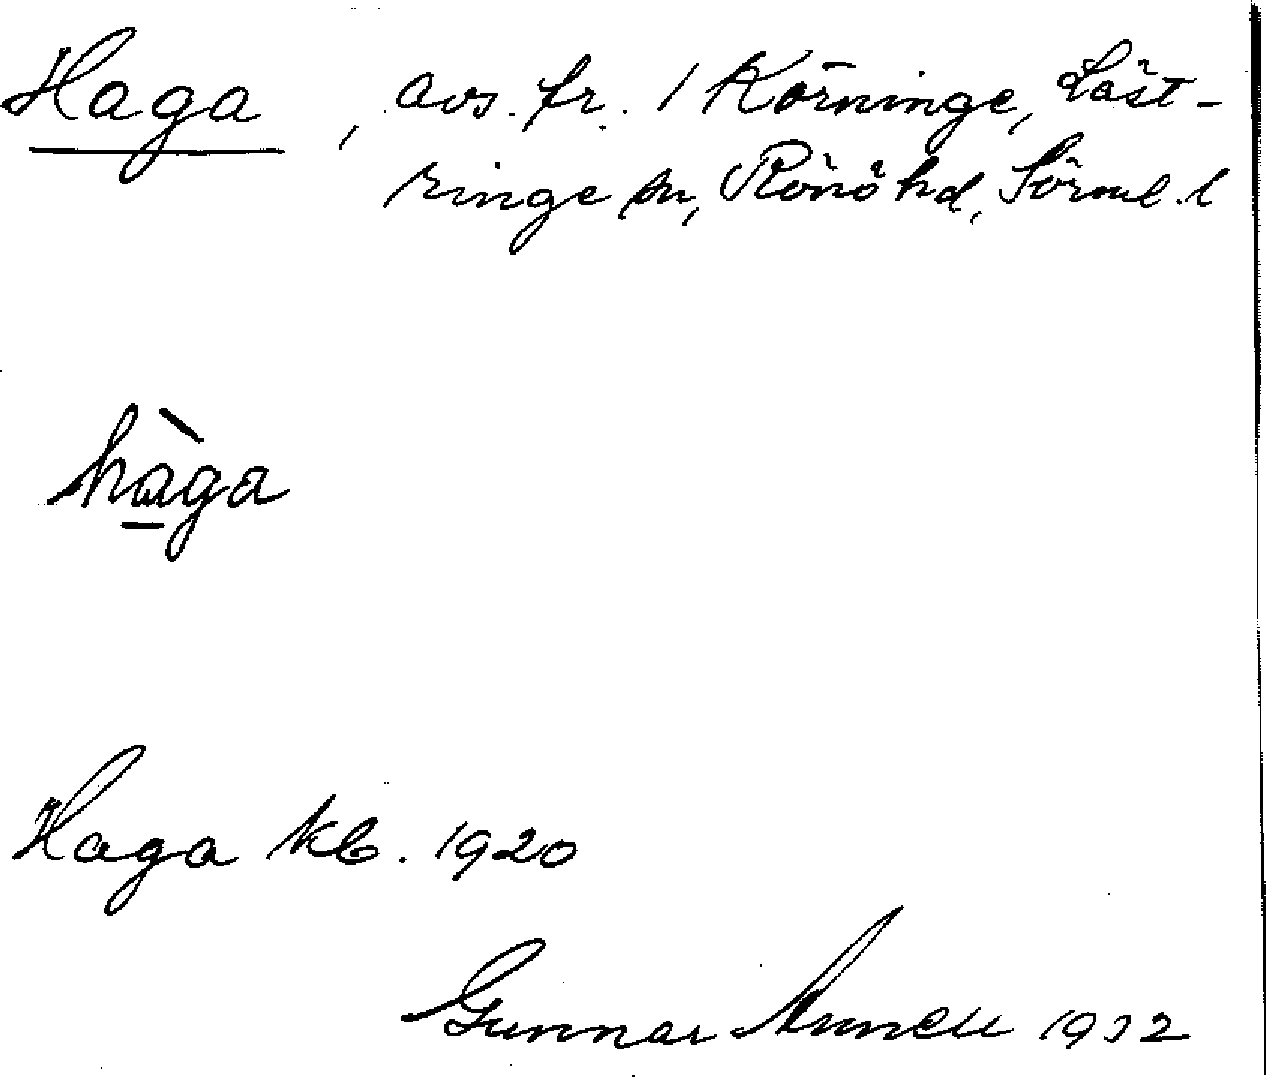 Haga, avs. fr. 1 Körninge, Läst-
ringe sn, Rönö hd, Sörml. l
hàga
Haga kb. 1920
Gunnar Annell 1932